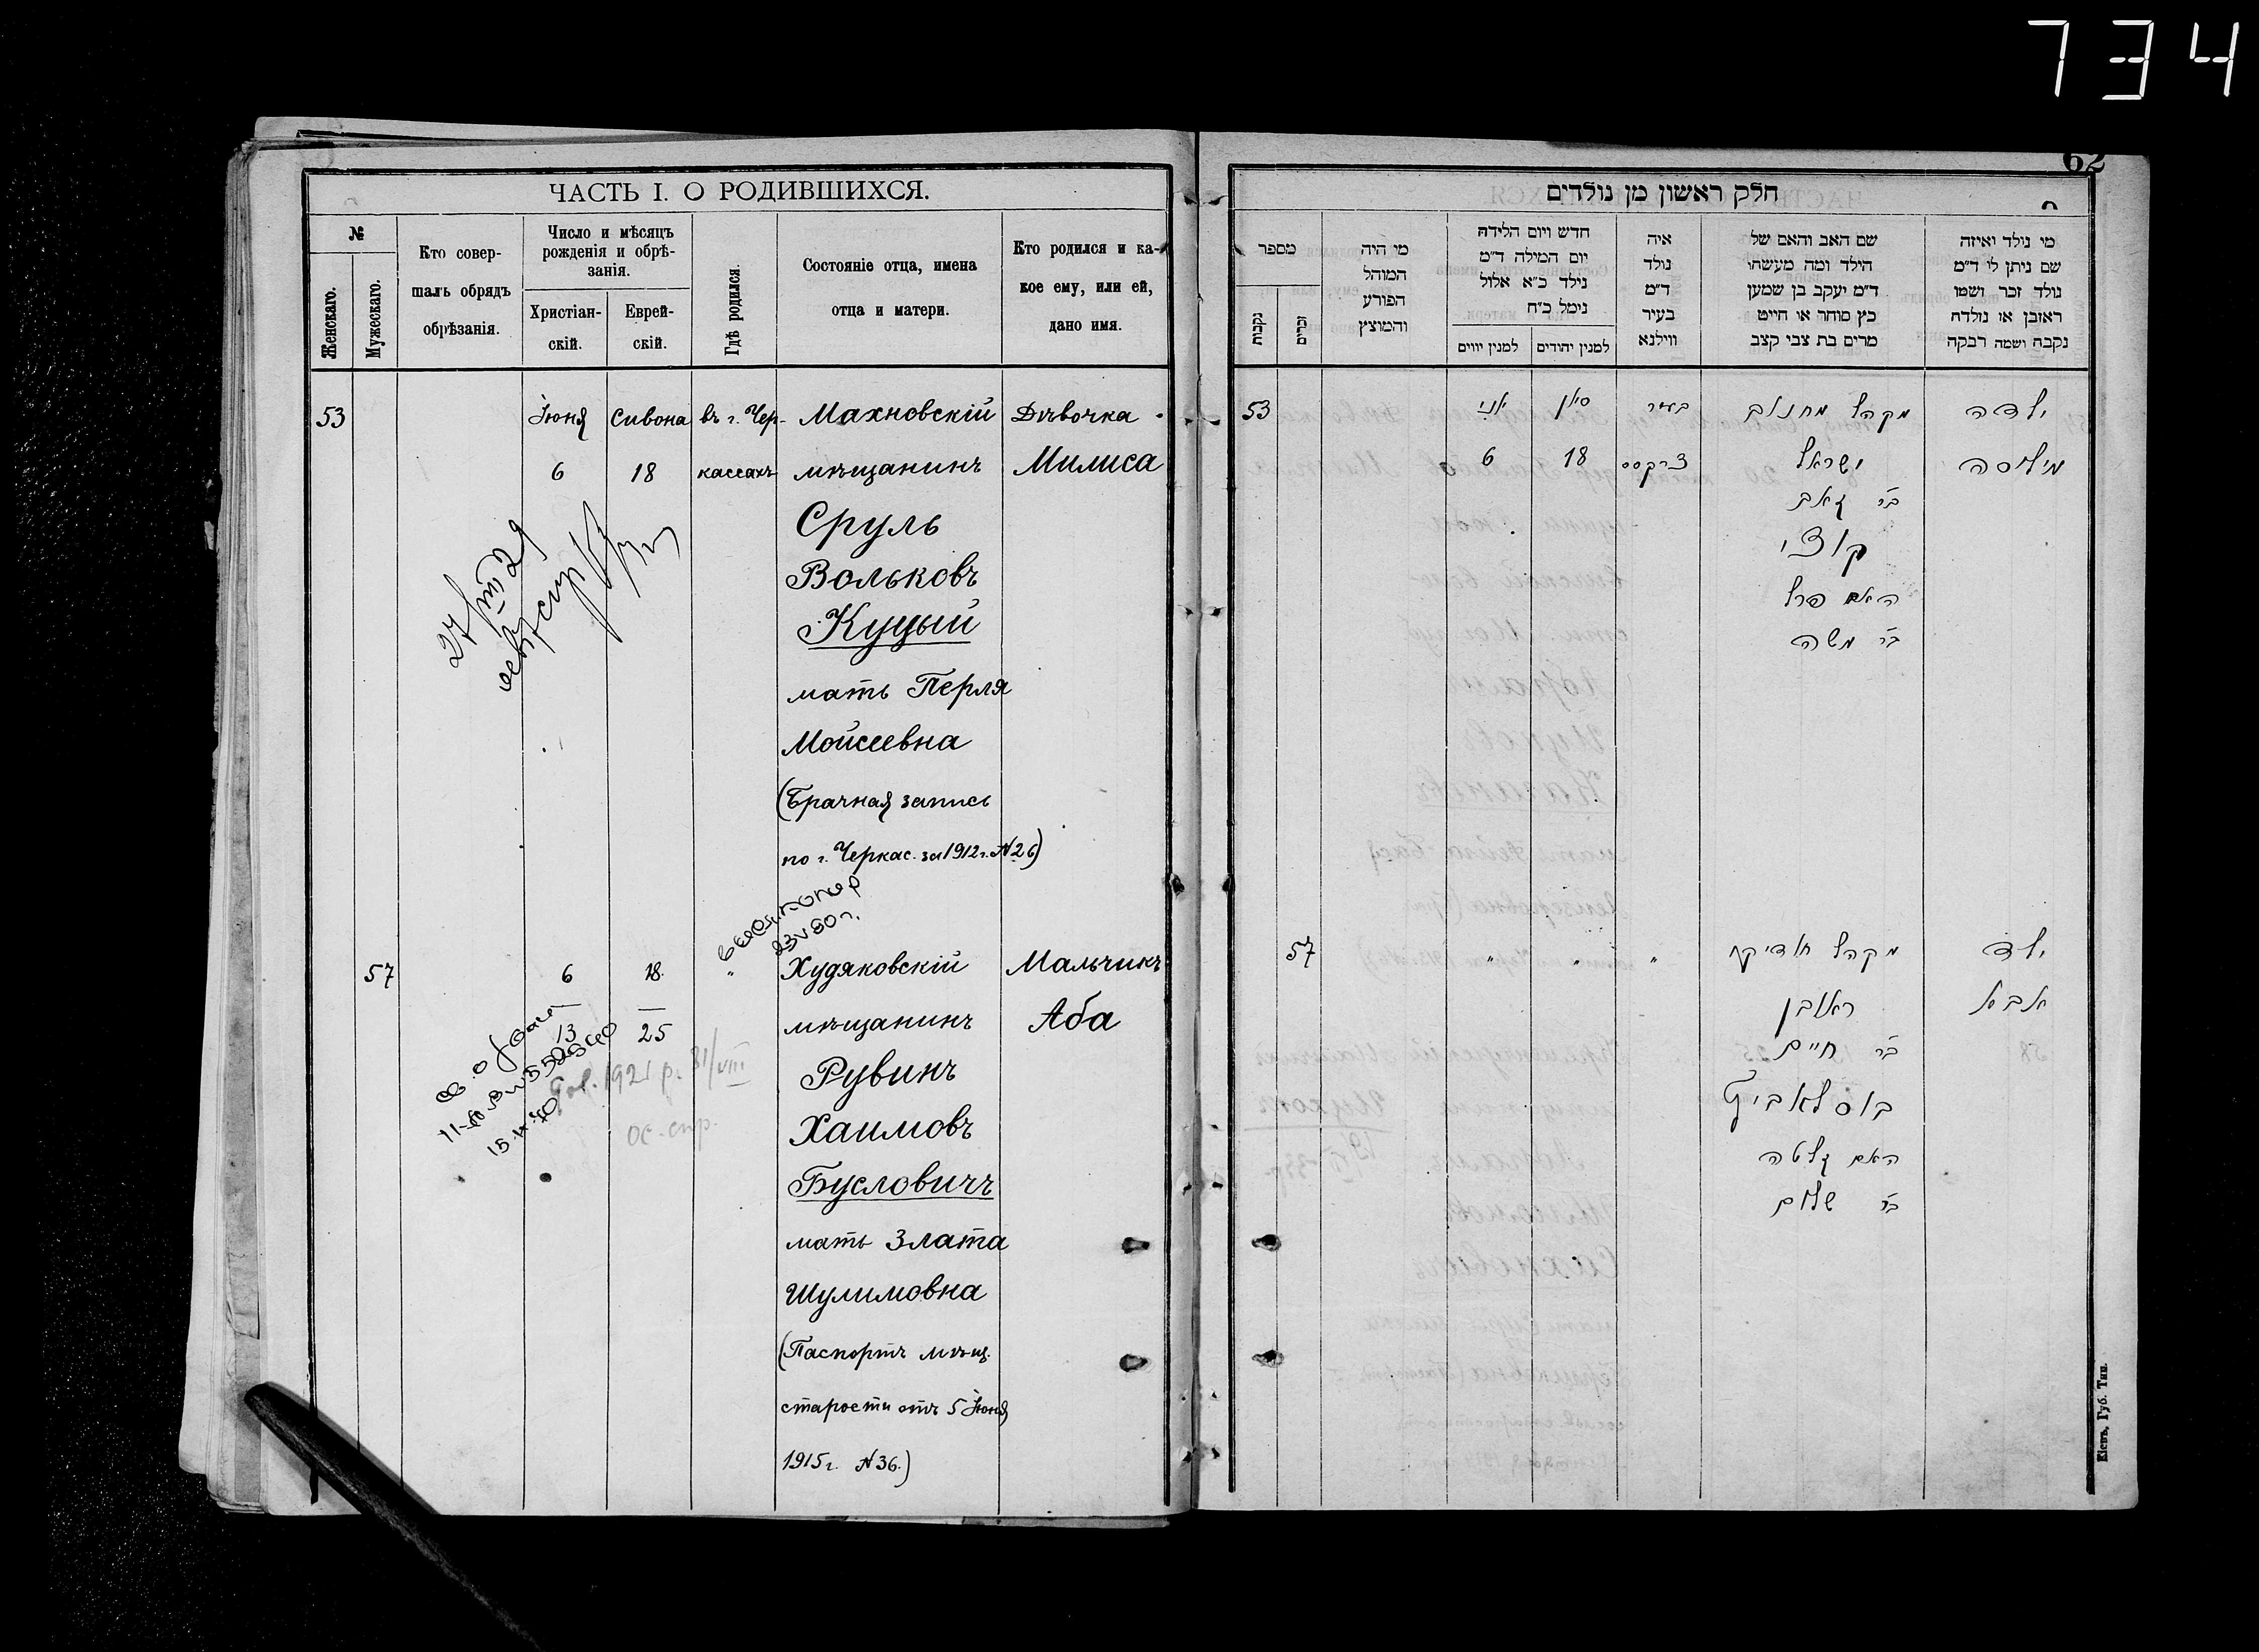 734
ЧАСТЬ I. О РОДИВШИХСЯ.
№
Женскаго.
Мужескаго.
Кто совер-
шалъ обрядъ
обрѣзанія.
Число и мѣсяцъ
рожденія и обрѣ-
занія.
Христіан-
скій.
Еврей-
скій.
Гдѣ родился.
Состояніе отца, имена
отца и матери.
Кто родился и ка-
кое ему, или ей,
дано имя.
53 Іюня Сивона въ г. Чер- Махновскій Дѣвочка
6 18 кассахъ мѣщанинъ Милиса
Сруль
Вольковъ
Куцый
мать Перля
Мойсеевна
(Брачная запись
по г. Черкас. за 1912 г. №26)
27/VIII 29
23 V 50 г.
57 6 18 " Худяковскій Мальчикъ
13 25 мѣщанинъ Аба
Рувинъ
Хаимовъ
Бусловичъ
мать Злата
Шулимовна
(Паспортъ мѣщ.
старости отъ 5 Іюня
1915 г. №36.)
1921 р. 31/VIII
ос. спр.
62
חלק ראשון מן נולדים
מספר
נקבות
זכרים
מי היה
המוהל
הפורע
והמוצץ
חדש ויום הלידה
יום המילה ד"מ
נילד כ"א אלול
נימל כ"ח
למנין יווים
למנין יהודים
איה
נולד
ד"מ
בעיר
ווילנא
שם האב והאם של
הילד ומה מעשהו
ד"מ יעקב בן שמען
כץ סוחר או חייט
מרים בת צבי קצב
מי נולד ואיזה
שם ניתן לו ד"מ
נולד זכר ושמו
ראובן או נולדה
נקבה ושמה רבקה
53 יוני סיון בעיר מקהל מחנוב ילדה
6 18 צרקסס ישראל מיליסה
בר זאב
קוצי
האם פרל
בר משה
57 " " " מקהל ילד
ראובן אבא
בר חיים
בוסלאביץ
האם זלטה
בר שלום
Кіевъ, Губ. Тип.